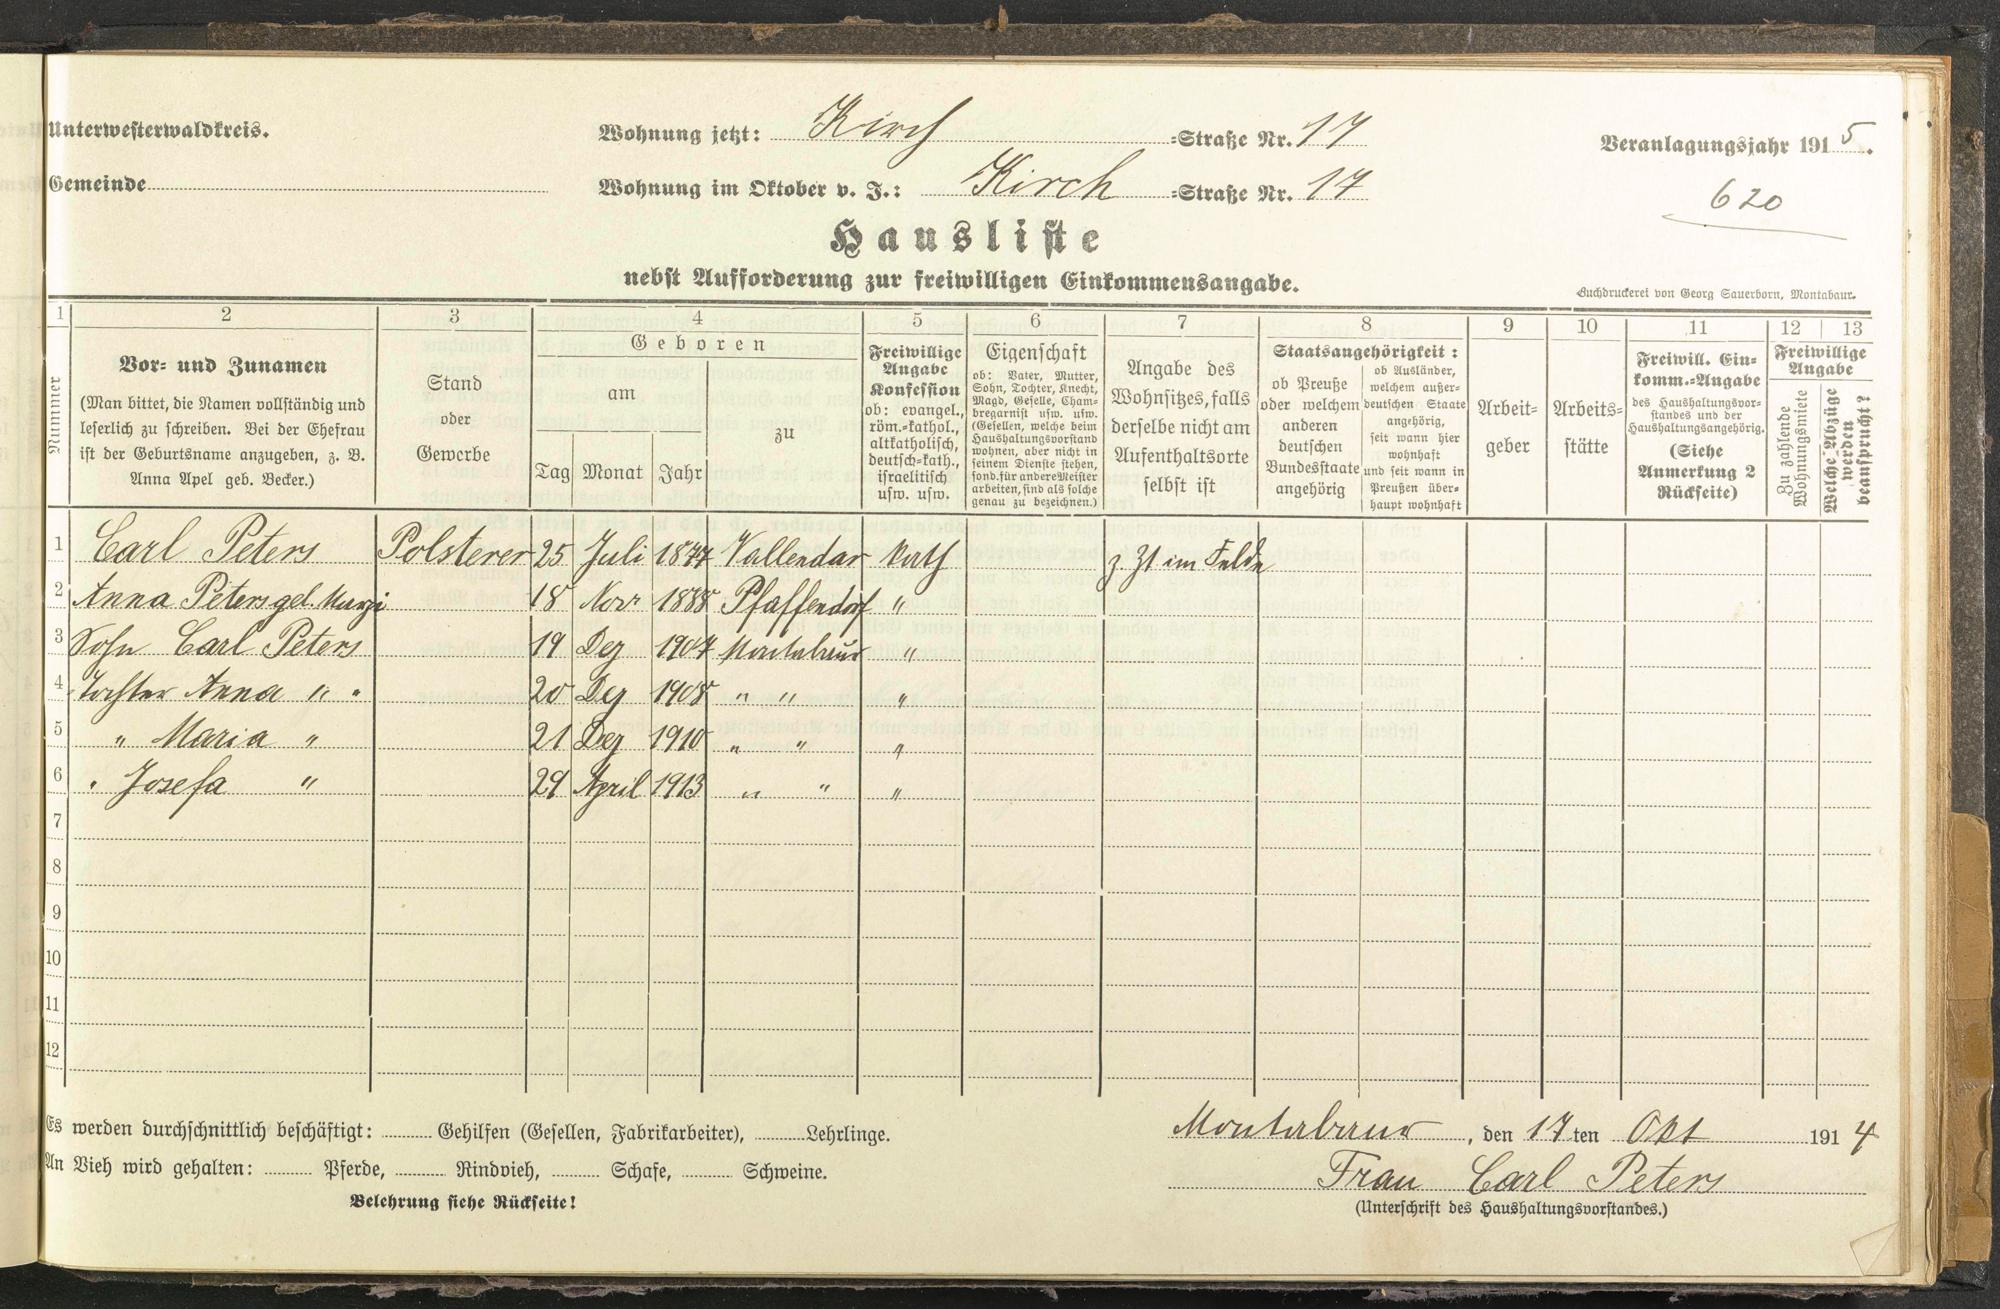 Unterwesterwaldkreis.
Wohnung jetzt: Kirch =Straße Nr. 17
Veranlagungsjahr 1915.
Gemeinde
Wohnung im Oktober v. J.: Kirch =Straße Nr. 17
620
Hausliste
nebst Aufforderung zur freiwilligen Einkommensangabe.
Buchdruckerei von Georg Sauerborn, Montabaur.
1 2 3 4 5 6 7 8 9 10 11 12 13
Nummer
Vor- und Zunamen
(Man bittet, die Namen vollständig und
leserlich zu schreiben. Bei der Ehefrau
ist der Geburtsname anzugeben, z. B.
Anna Apel geb. Becker.)
Stand
oder
Gewerbe
Geboren
am
Tag Monat Jahr
zu
Freiwillige
Angabe
Konfession
ob: evangel.,
röm.-kathol.,
altkatholisch,
deutsch-kath.,
israelitisch
usw. usw.
Eigenschaft
ob: Vater, Mutter,
Sohn, Tochter, Knecht,
Magd, Geselle, Cham-
bregarnist usw. usw.
(Gesellen, welche beim
Haushaltungsvorstand
wohnen, aber nicht in
seinem Dienste stehen,
sond. für andere Meister
arbeiten, sind als solche
genau zu bezeichnen.)
Angabe des
Wohnsitzes, falls
derselbe nicht am
Aufenthaltsorte
selbst ist
Staatsangehörigkeit:
ob Preuße
oder welchem
anderen
deutschen
Bundesstaate
angehörig
ob Ausländer,
welchem außer-
deutschen Staate
angehörig,
seit wann hier
wohnhaft
und seit wann in
Preußen über-
haupt wohnhaft
Arbeit-
geber
Arbeits-
stätte
Freiwill. Ein-
komm.-Angabe
des Haushaltungsvor-
standes und der
Haushaltungsangehörig.
(Siehe
Anmerkung 2
Rückseite)
Freiwillige
Angabe
Zu zahlende
Wohnungsmiete
Welche Abzüge
werden
beansprucht?
1 Carl Peters Polsterer 25 Juli 1877 Vallendar kath z. Zt im Felde
2 Anna Peters geb. 18 Nov 1888 Pfaffendorf "
3 Sohn Carl Peters 19 Dez 1907 Montabaur "
4 Tochter Anna " " 20 Dez 1908 " " "
5 " Maria " 21 Dez 1910 " " "
6 " Josefa " 29 April 1913 " " "
7
8
9
10
11
12
Es werden durchschnittlich beschäftigt: Gehilfen (Gesellen, Fabrikarbeiter), Lehrlinge.
An Vieh wird gehalten: Pferde, Rindvieh, Schafe, Schweine.
Belehrung siehe Rückseite!
Montabaur, den 17ten Okt 1914
Frau Carl Peters
(Unterschrift des Haushaltungsvorstandes.)